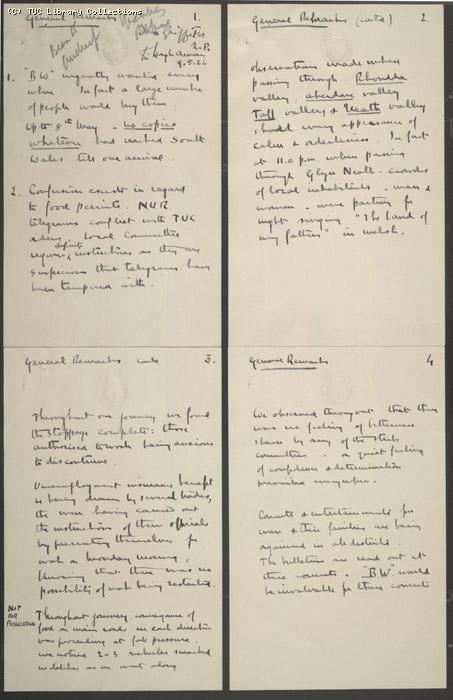 (C) TUC Library Collections
General Remarks 1.
9.5.26
1. "BW" urgently wanted every
where. In fact a large number
of people would buy them
Up to 8th May - no copies
whatever had reached South
Wales till our arrival.
2. Confusion existed in regard
to food permits. NUR
telegrams conflict with TUC
orders. Local Committees
require definite instructions as they are
suspicious that telegrams have
been tampered with.
General Remarks (contd) 2.
observations made when
passing through Rhondda
valley, Aberdare valley
Taff valley & Neath valley
showed every appearance of
calm & orderliness. In fact
at 11.0 p.m when passing
through Glyn Neath - crowds
of local inhabitants - men &
women - were parting for
night singing "The Land of
my fathers" in welsh.
General Remarks contd 3.
Throughout our journey we found
the stoppage complete: those
authorised to work being anxious
to discontinue.
Unemployment insurance benefit
is being drawn by several bodies,
the men having carried out
the instructions of their officials
by presenting themselves for
work on monday morning,
knowing that there was no
possibility of work being restarted.
NOT
FOR
PUBLICATION
Throughout journey conveyance of
food on main roads in each direction
was proceeding at full pressure.
we noticed 2 or 3 vehicles smashed
in ditches as we went along
General Remarks 4
We observed throughout that there
was no feeling of bitterness
shown by any of the strike
committees. a quiet feeling
of confidence & determination
prevailed everywhere.
Concerts & entertainments for
men & their families are being
organised in all districts.
The bulletins are read out at
these concerts. "BW" would
be invaluable for these concerts